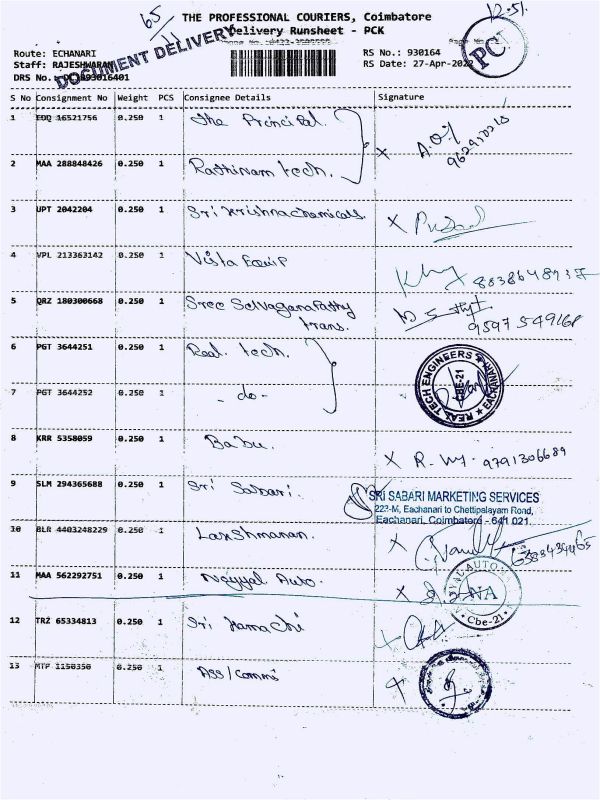 65
THE PROFESSIONAL COURIERS, Coimbatore
12.51
Delivery Runsheet - PCK
DOCUMENT DELIVERY
PC
Route: ECHANARI
RS No.: 930164
Staff: RAJESHWARAN
RS Date: 27-Apr-2022
DRS No.
S No Consignment No Weight PCS Consignee Details Signature
1 EDQ 16521756 0.250 1 The Principal.
2 MAA 288848426 0.250 1 Rathinam tech.
3 UPT 2042204 0.250 1 Sri Krishna chemicals.
4 VPL 213363142 0.250 1 Vista Equip
5 QRZ 180300668 0.250 1 Sree Selvaganapathy
trans.
6 PGT 3644251 0.250 1 Real tech.
REAL TECH ENGINEERS
CBE-21
EACHANARI
7 PGT 3644252 0.250 1 - do -
8 KRR 5358059 0.250 1 Babu. 9791306689
9 SLM 294365688 0.250 1 Sri Sabari.
SRI SABARI MARKETING SERVICES
223-M, Eachanari to Chettipalayam Road,
Eachanari, Coimbatore - 641 021.
10 BLR 4403248229 0.250 1 Lakshmanan.
11 MAA 562292751 0.250 1 Noyyal Auto.
NA
Cbe-21
12 TRZ 65334813 0.250 1 Sri Hamachi
13 MTP 1150350 0.250 1 Ass/Comms